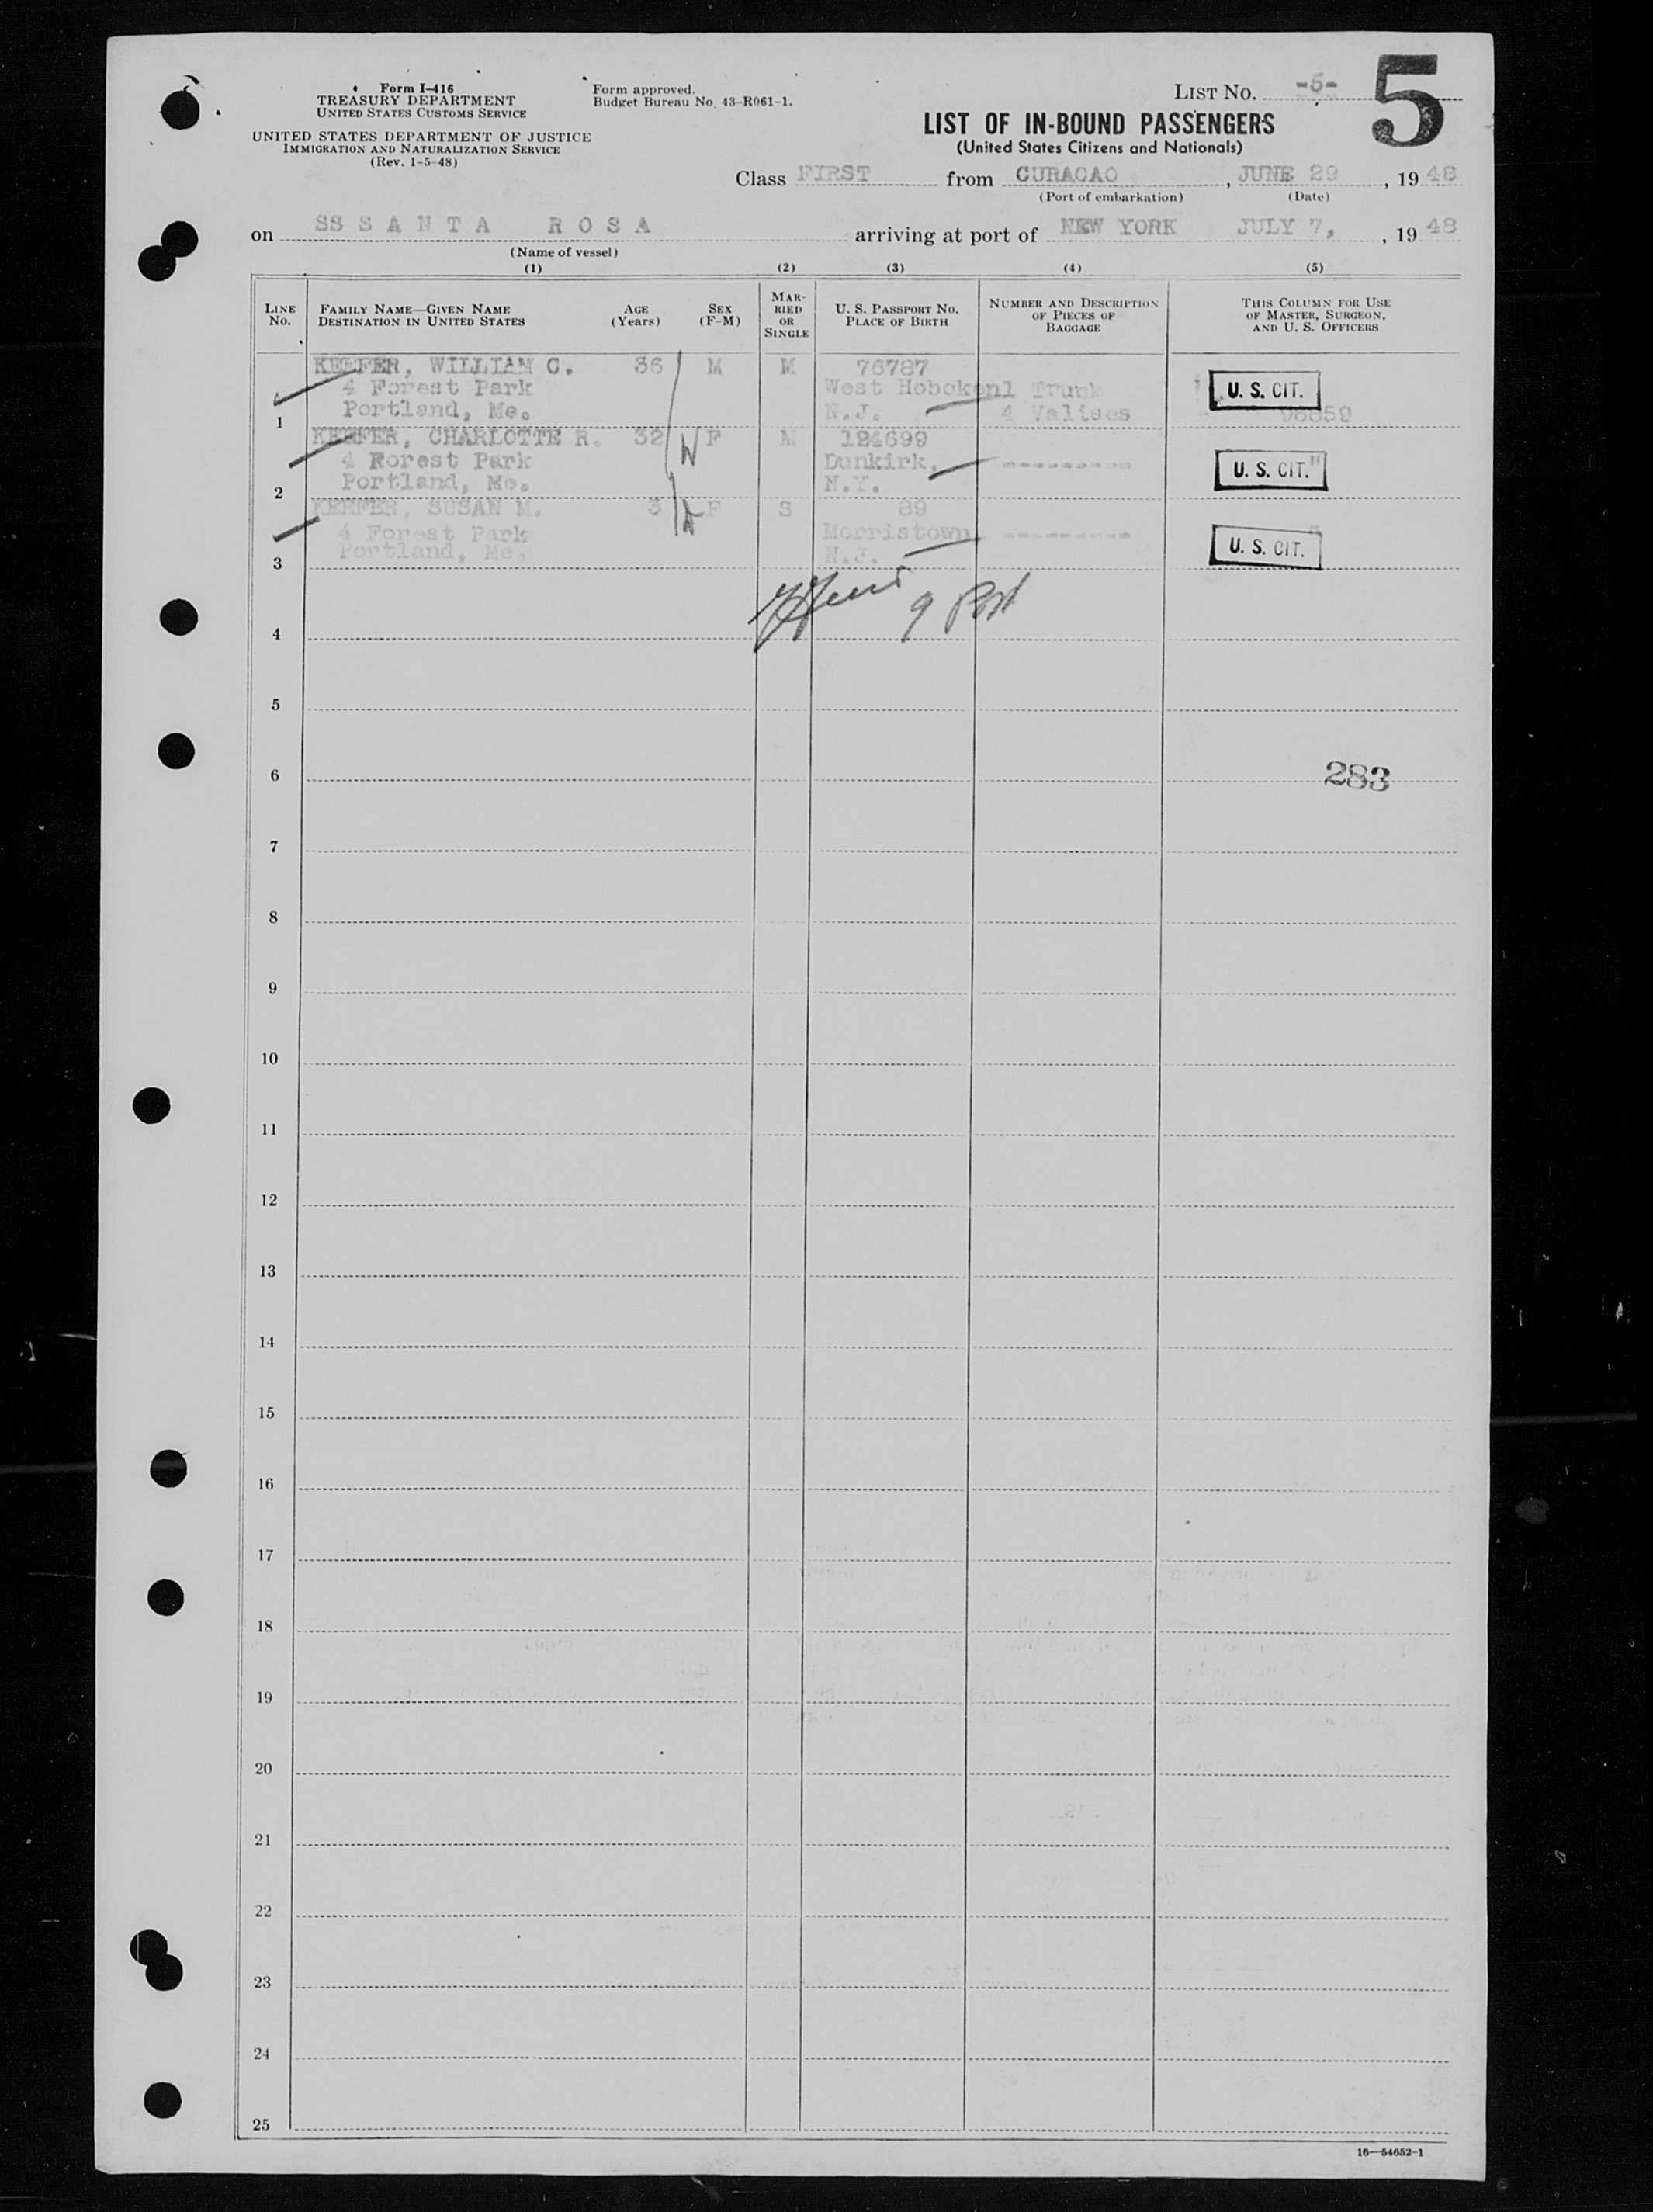 Form I-416
TREASURY DEPARTMENT
UNITED STATES CUSTOMS SERVICE
UNITED STATES DEPARTMENT OF JUSTICE
IMMIGRATION AND NATURALIZATION SERVICE
(Rev. 1-5-48)
Form approved.
Budget Bureau No. 43-R061-1.
LIST NO. -5-
5
LIST OF IN-BOUND PASSENGERS
(United States Citizens and Nationals)
Class FIRST from CURACAO, JUNE 29, 1948
(Port of embarkation) (Date)
on SS SANTA ROSA arriving at port of NEW YORK JULY 7, , 1948
(Name of vessel)
(1) (2) (3) (4) (5)
LINE No.
FAMILY NAME—GIVEN NAME
DESTINATION IN UNITED STATES
AGE (Years)
SEX (F-M)
MARRIED OR SINGLE
U. S. PASSPORT NO.
PLACE OF BIRTH
NUMBER AND DESCRIPTION OF PIECES OF BAGGAGE
THIS COLUMN FOR USE OF MASTER, SURGEON, AND U. S. OFFICERS
KEEFER, WILLIAM C. 36 M M 76787
4 Forest Park West Hoboken 1 Trunk U. S. CIT.
1 Portland, Me. N.J. 4 Valises 96859
KEEFER, CHARLOTTE R. 32 W F M 124699
4 Forest Park Dunkirk, --------- U. S. CIT. "
2 Portland, Me. N.Y.
KEEFER, SUSAN M. 3 F S 89
4 Forest Park Morristown, --------- "
Portland, Me. N.J. U. S. CIT.
3
9 Port
4
5
6 283
7
8
9
10
11
12
13
14
15
16
17
18
19
20
21
22
23
24
25
16—54652-1